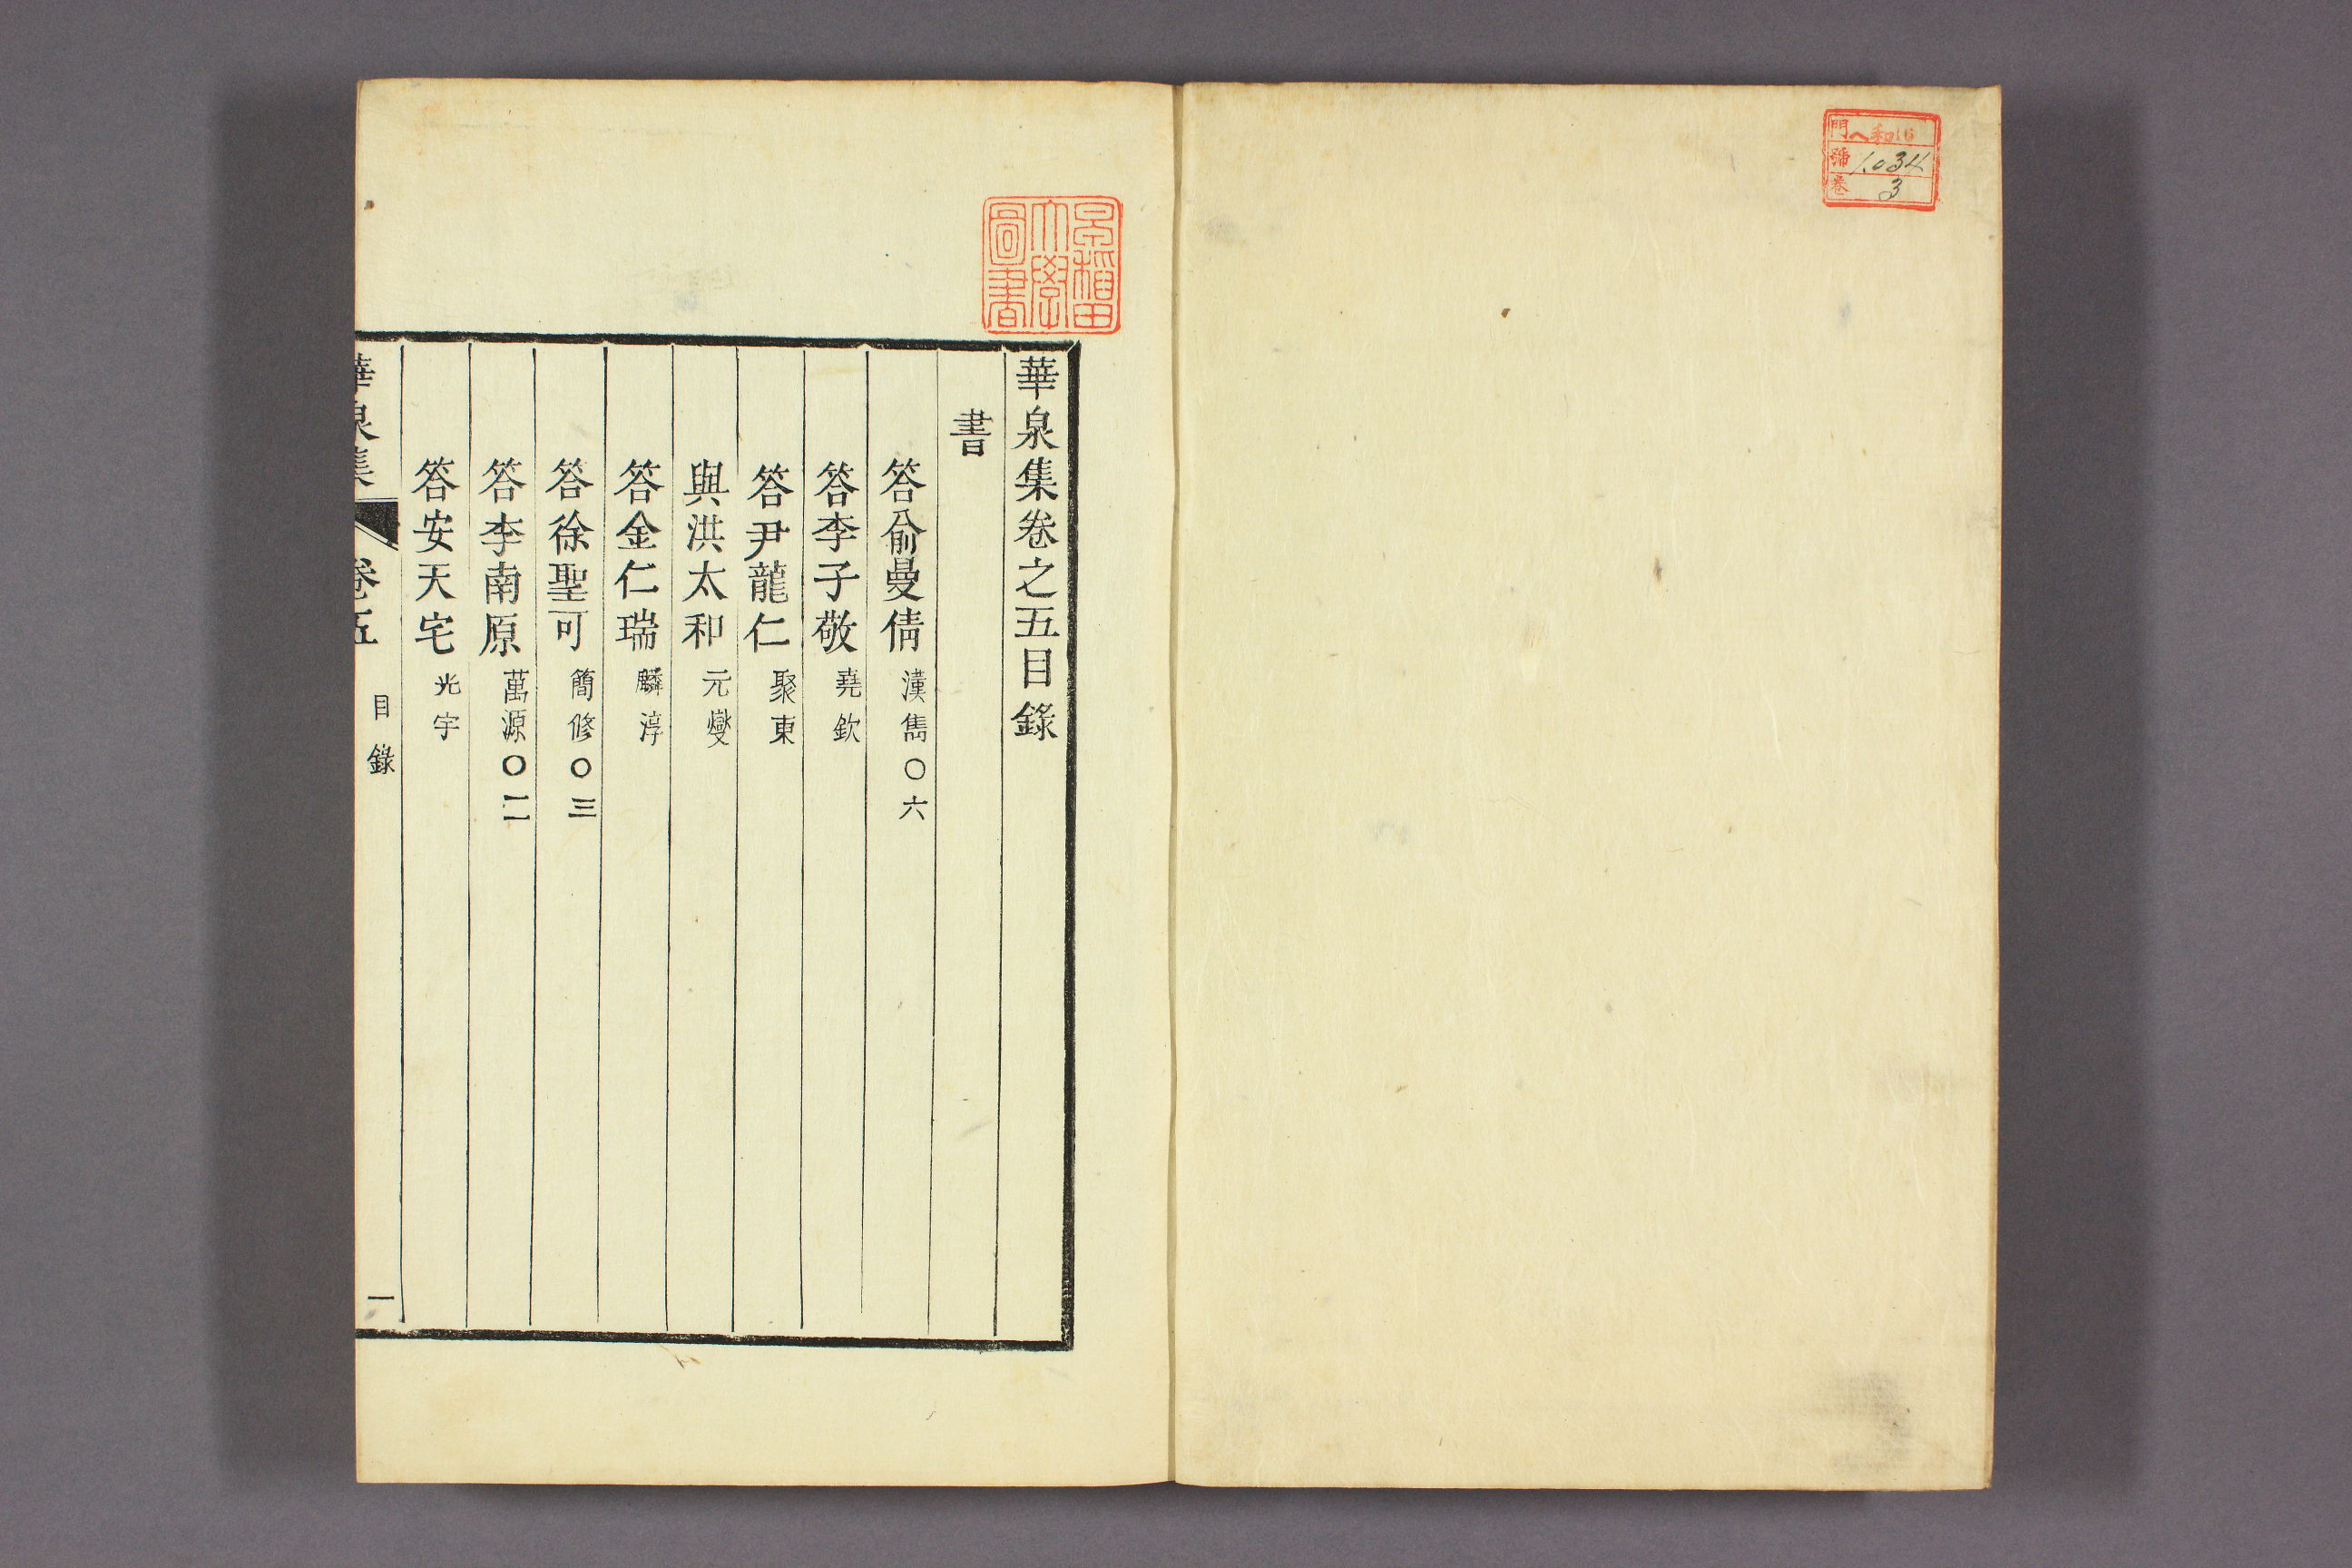 門 ヘ16
號 1034
卷 3
早稲田
大學
圖書
華泉集卷之五目錄
書
答兪曼倩 漢雋〇六
答李子敬 堯欽
答尹龍仁 聚東
與洪太和 元燮
答金仁瑞 麟淳
答徐聖可 簡修〇三
答李南原 萬源〇二
答安天宅 光宇
華泉集 卷五 目錄 一